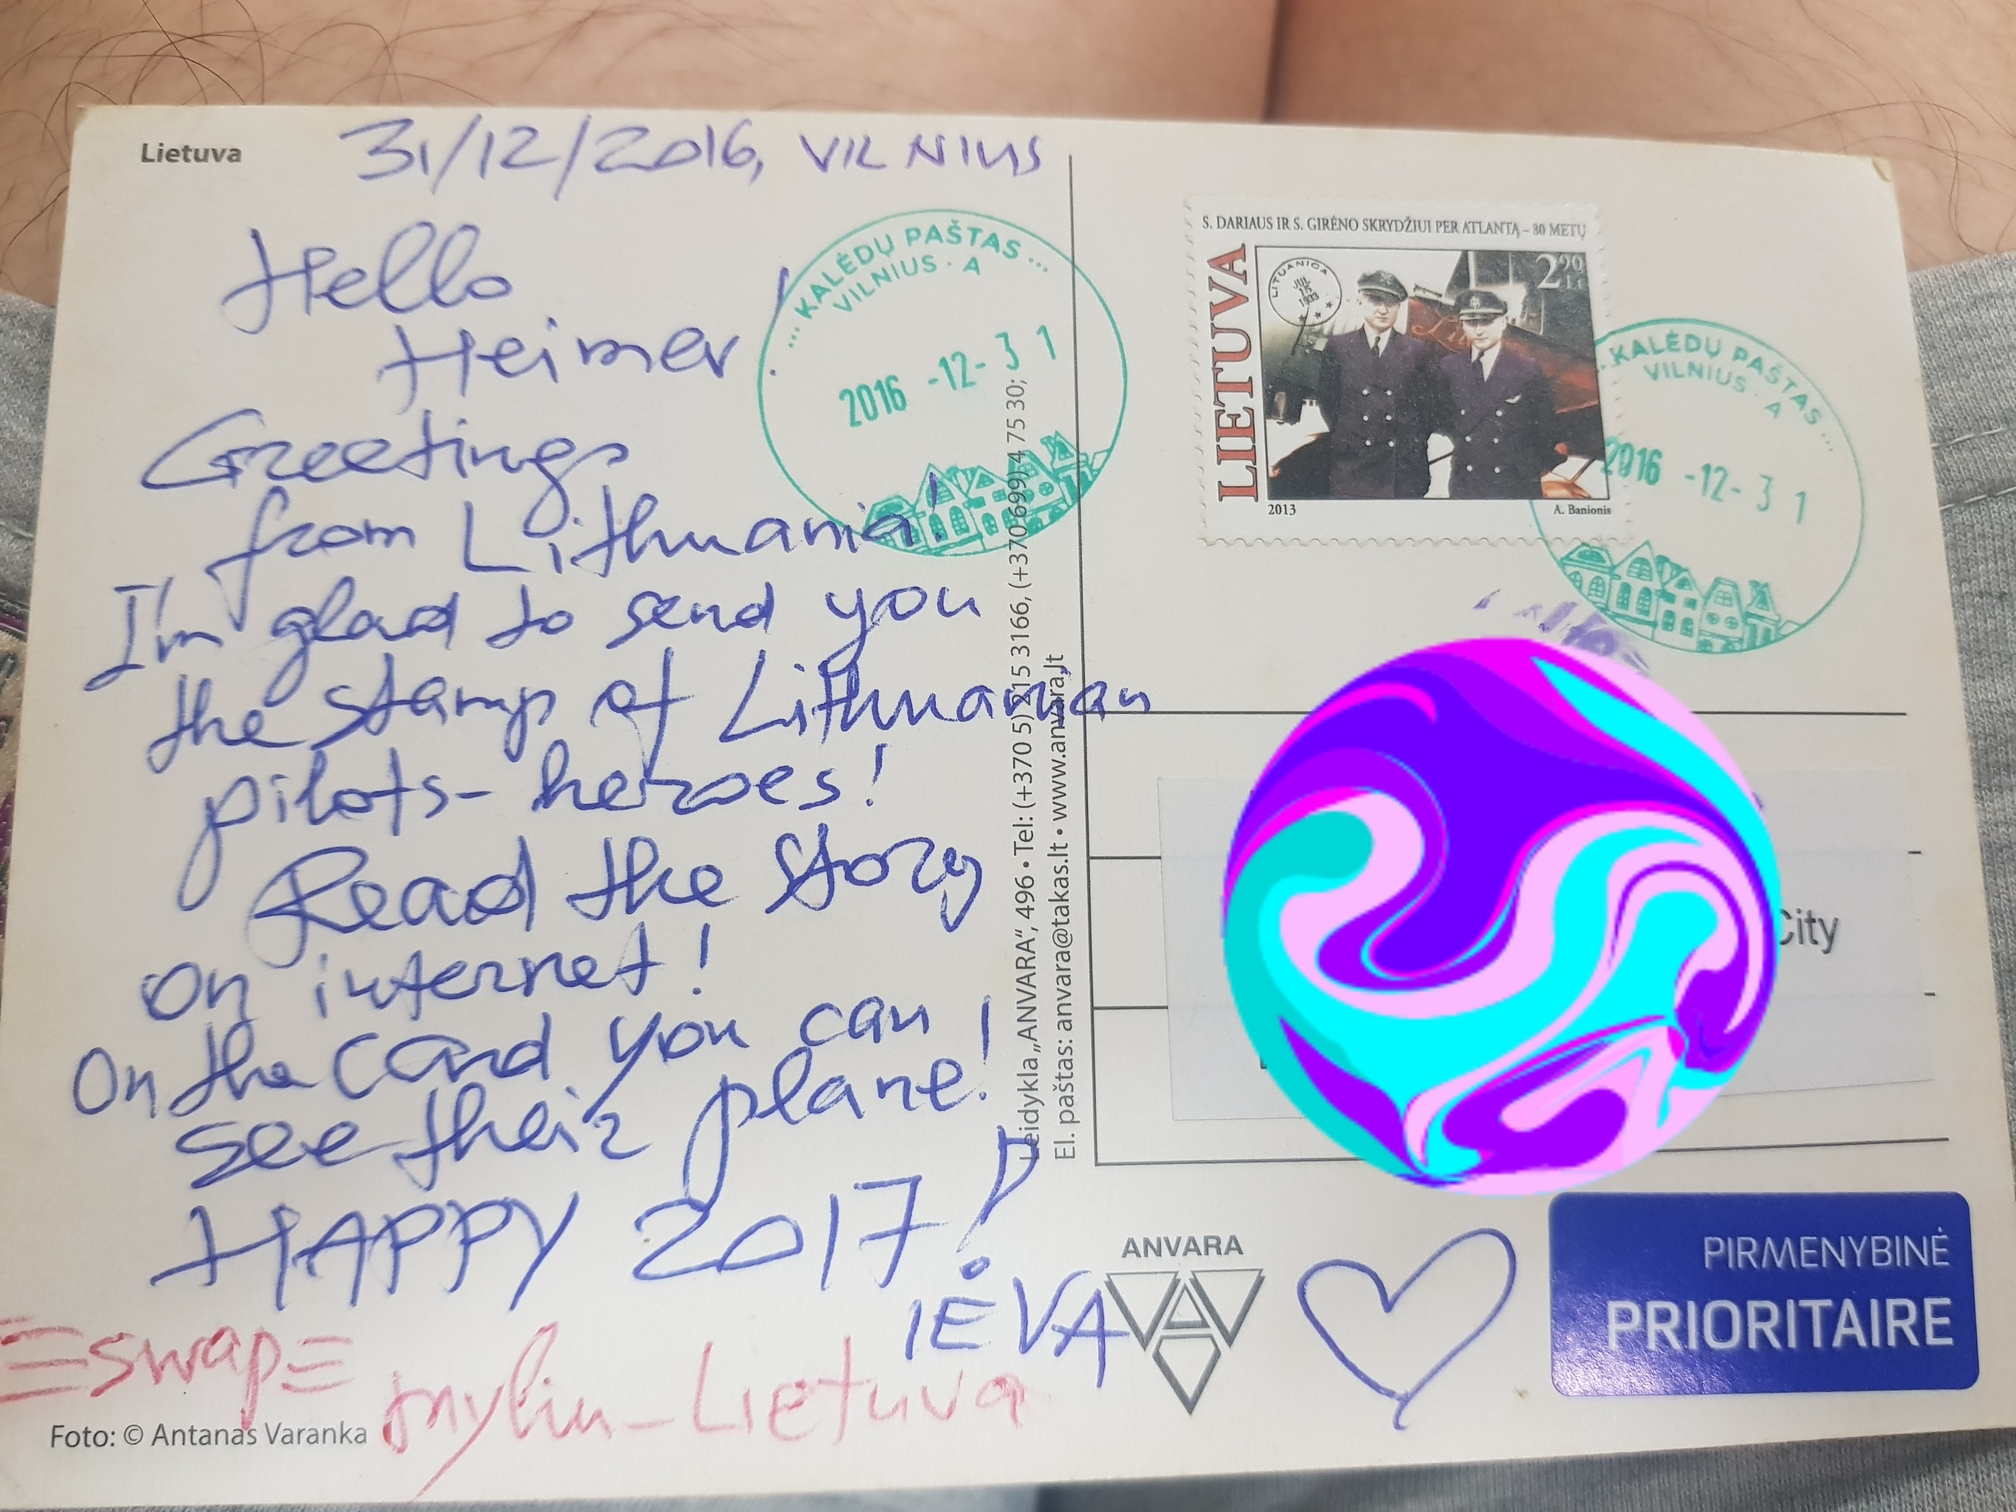 Lietuva
31/12/2016, VILNIUS
Hello
Heimer!
Greetings
from Lithuania!
I'm glad to send you
the stamp of Lithuanian
pilots-heroes!
Read the story
on internet!
On the card you can
see their plane!
HAPPY 2017!
IĖVA
≡swap≡
myliu-Lietuva
Foto: © Antanas Varanka
... KALĖDŲ PAŠTAS ...
VILNIUS · A
2016 -12- 3 1
Leidykla „ANVARA“, 496 • Tel: (+370 5) 215 3166, (+370 699) 4 75 30;
El. paštas: anvara@takas.lt • www.anvara.lt
S. DARIAUS IR S. GIRĖNO SKRYDŽIUI PER ATLANTĄ – 80 METŲ
LIETUVA
LITUANICA
JUL
15
1933
2 90 Lt
2013
A. Banionis
KALĖDŲ PAŠTAS ...
VILNIUS · A
2016 -12- 3 1
City
ANVARA
PIRMENYBINĖ
PRIORITAIRE